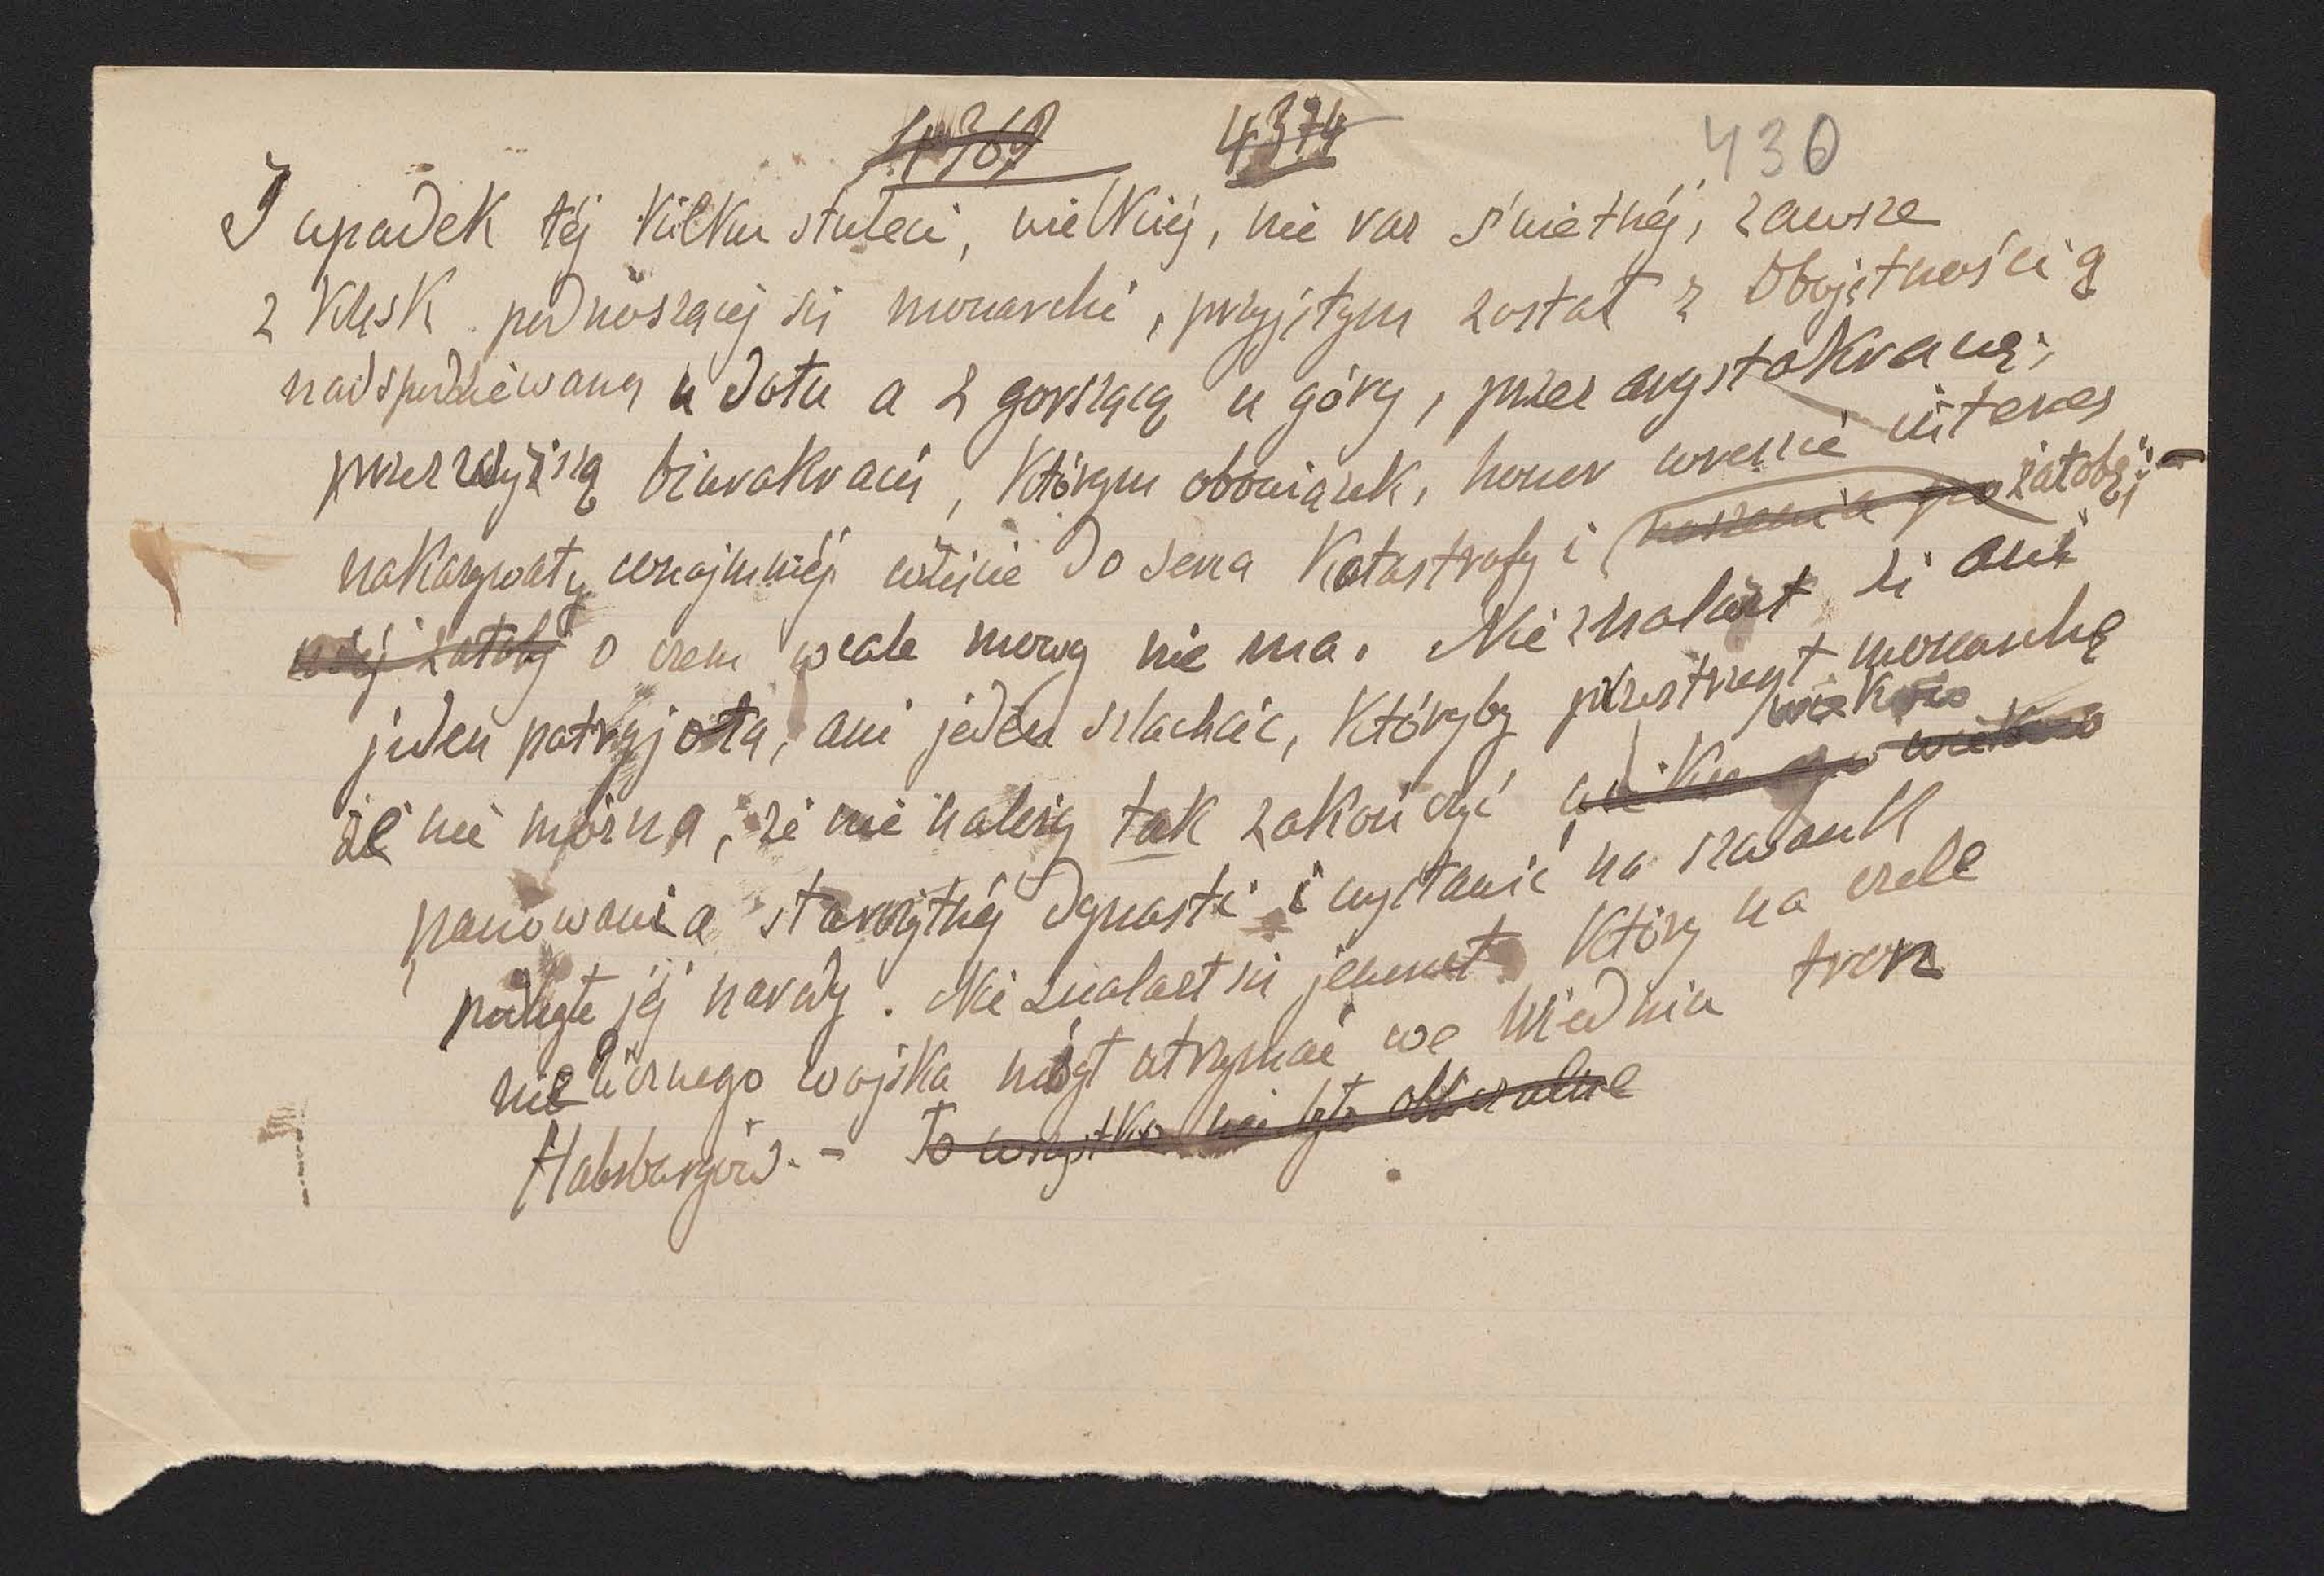 4369 4374 430
I upadek téj kilku stuleci, wielkiéj, nie raz świetnéj, zawsze
z klęsk podnoszącéj się monarchii, przyjętym został z obojętnością
nadspodziewaną u dołu a z gorszącą u góry, przez arystokracyą,
przez wyższą biurokracyą, którym obowiązek, honor wreszcie interes
nakazywały conajmniéj wejście do serca katastrofy i noszenia po żałobę; –
niéj żałoby o czem wcale mowy nie ma. Nie znalazł się ani
jeden patryjota, ani jeden szlachcic, któryby przestrzegł monarchę
wiekowo
że nie można, że nie należy tak zakończyć
panowania starożytnéj dynastii i wystawić na szwank
podległe jéj narody. Nie znalazł się jenerał który na czele
nielicznego wojska mógł utrzymać we Wiedniu tron
Habsburgów. – To wszystko nie było obliczalne